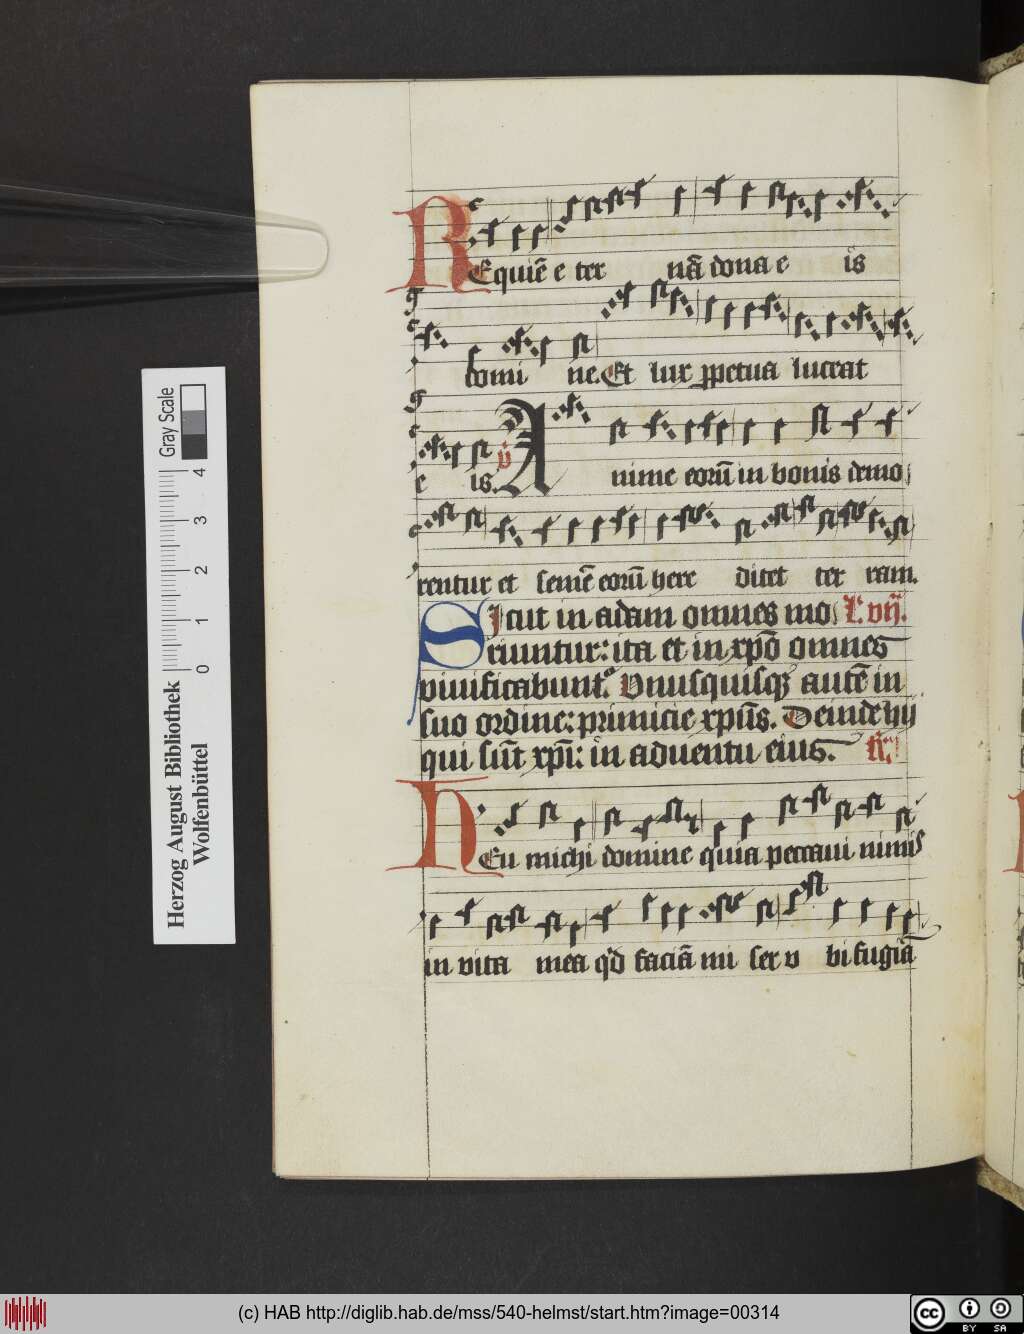 REquiē e ter nā dona e is
domi ne. Et lux ꝑpetua luceat
e is. ℣ A nime eorū in bonis demo
rentur et semē eorū here ditet ter ram.
SIcut in adam omnes mo L' vij.
riuntur: ita et in xp̄o omnes
viuificabunt'. Vnusquisqꝫ autē in
suo ordine: primicie xp̄us. Deinde hij
qui sūt xp̄i: in aduentu eius. R̄
HEu michi domine quia peccaui nimis
in vita mea qd faciā mi ser v bi fugiā
Gray Scale
0 1 2 3 4
Herzog August Bibliothek
Wolfenbüttel
(c) HAB http://diglib.hab.de/mss/540-helmst/start.htm?image=00314
cc BY SA